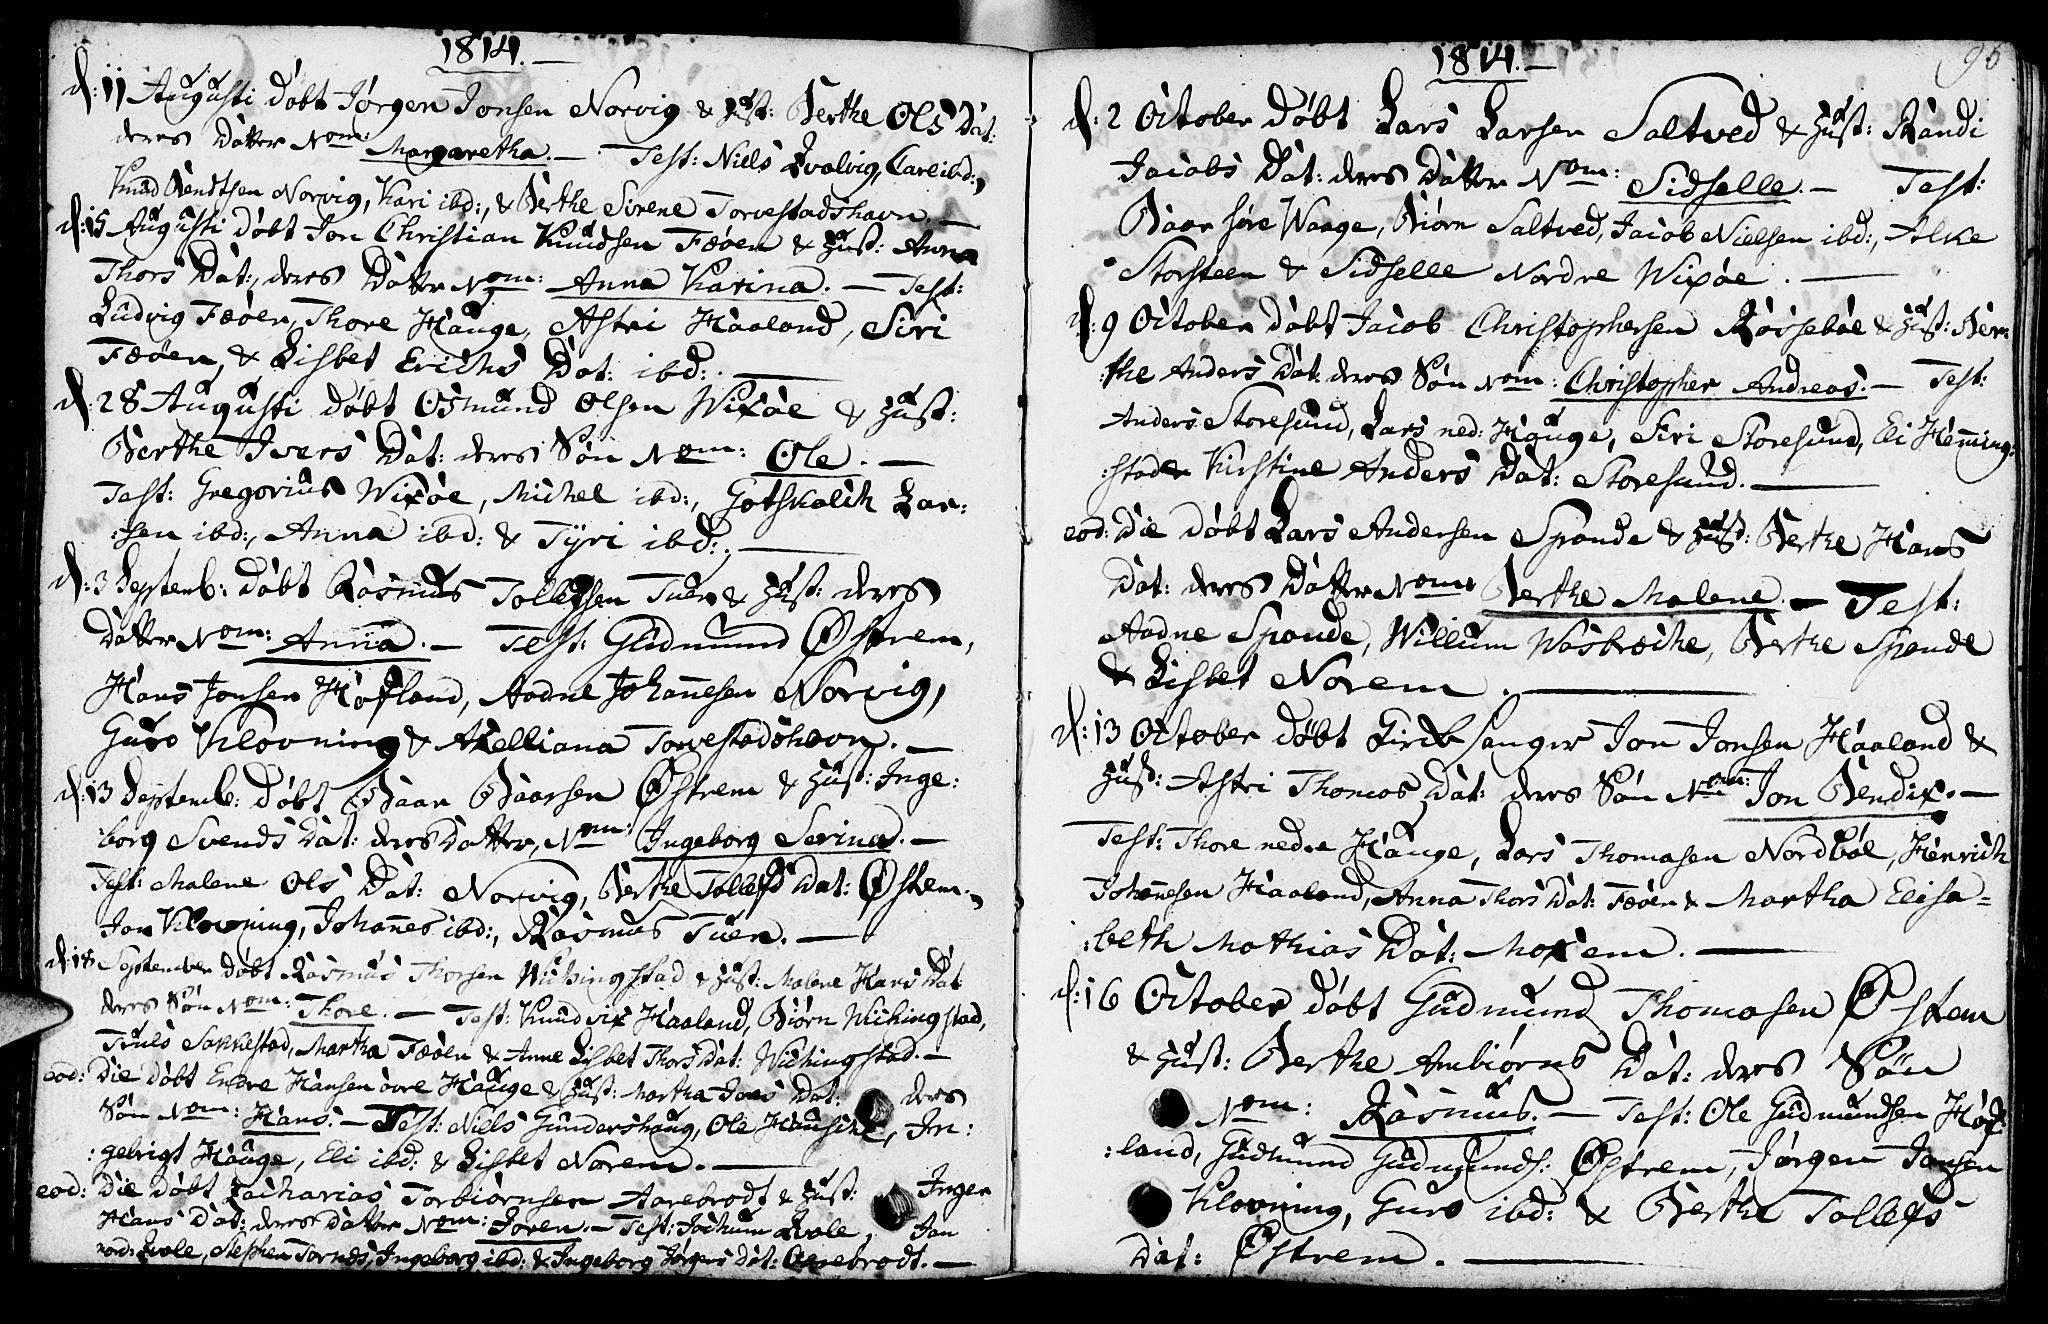 1814.
d: 11 Augusti døbt Jørgen Jonsen Norvig & Hust: Berthe Ols Dat:
deres Datter Nom: Margaretha. — Test: Niels Qvalvig, Carl ibd:,
Knud Bendtsen Norvig, Kari ibd:, & Berthe Sirene Torvestadshavn. —
d: 15 Augusti døbt Jon Christian Knudsen Fæøen & Hust: Anna
Thors Dat:, deres Datter Nom: Anna Karina. — Test:
Ludvig Fæøen, Thore Hauge, Astri Haaland, Siri
Fæøen, & Lisbet Erichs Dat: ibd:. —
d: 28 Augusti døbt Osmund Olsen Wixøe & Hust:
Berthe Ivers Dat: deres Søn Nom: Ole. —
Test: Gregorius Wixøe, Michel ibd:, Gotskalch Lar:
:sen ibd:, Anna ibd: & Tyri ibd:. —
d: 3 Septemb: døbt Rasmus Tollefsen Tuen & Hust: deres
Datter Nom: Anna. — Test: Gudmund Østrem,
Hans Jonsen Hafland, Aadne Johannesen Norvig,
Guro Klovning & Axelliana Torvestadshavn. —
d: 13 Septemb: døbt Baar Baarsen Østrem & Hust: Inge:
:borg Svends Dat: deres Datter, Nom: Ingeborg Serina. —
Test: Malene Ols Dat: Norvig, Berthe Tollefs Dat: Østrem,
Jon Klovning, Johannes ibd:, Rasmus Tuen. —
d: 18 September døbt Rasmus Thorsen Wichingstad & Hust: Malene Hans Dat
deres Søn Nom: Thore. — Test: Knud Six Haaland, Biørn Wichingstad,
Truls Sakkestad, Martha Fæøen & Anne Lisbet Thors Dat: Wichingstad. —
eod: Die døbt Endre Hansen øvre Hauge & Hust: Martha Jons Dat: deres
Søn Nom: Hans. — Test: Niels Gundershaug, Ole Hauske, In:
:gebrigt Hauge, Eli ibd: & Lisbet Norem. —
eod: Die døbt Zacharias Torbiørnsen Aarebrodt & Hust: Inger
Hans Dat: deres Datter Nom: Joren. — Test: Jochum Qvale, Jon
nord: Qvale, Stephen Tornæs, Ingeborg ibd: & Ingeborg Jørgens Dat: Aarebrodt. —
1814. —
d: 2 October døbt Lars Larsen Saltved & Hust: Randi
Jacobs Dat: deres Datter Nom: Sidselle. — Test:
Baar søre Waage, Biørn Saltved, Jacob Nielsen ibd:, Alke
Storsteen & Sidselle Nordre Wixøe. —
d: 9 October døbt Jacob Christophersen Røssebøe & Hust: Ber:
:the Anders Dat: deres Søn Nom: Christopher Andreas. — Test:
Anders Storesund, Lars ned: Hauge, Siri Storesund, Eli Henning:
:stad & Kirstine Anders Dat: Storesund. —
eod: Die døbt Lars Andersen Spande & Hust: Berthe Hans
Dat: deres Datter Nom: Berthe Malene. — Test:
Aadne Spande, Willum Wasbreche, Berthe Spande
& Lisbet Norem. —
d: 13 October døbt Kirkesanger Jon Jonsen Haaland &
Hust: Astri Thomas Dat: deres Søn Nom: Jon Bendix. —
Test: Thore nedre Hauge, Lars Thomasen Nordbøe, Henrich
Johannesen Haaland, Anna Thors Dat: Fæøen & Martha Elisa=
:beth Mathias Dat: Moxem. —
d: 16 October døbt Gudmund Thomasen Østrem
& Hust: Berthe Ambiørns Dat: deres Søn
Nom: Rasmus. — Test: Ole Gudmundsen Haf:
:land, Gudmund Gudmunds: Østrem, Jørgen Jonsen
Klovning, Guro ibd: & Berthe Tollefs
Dat: Østrem. —